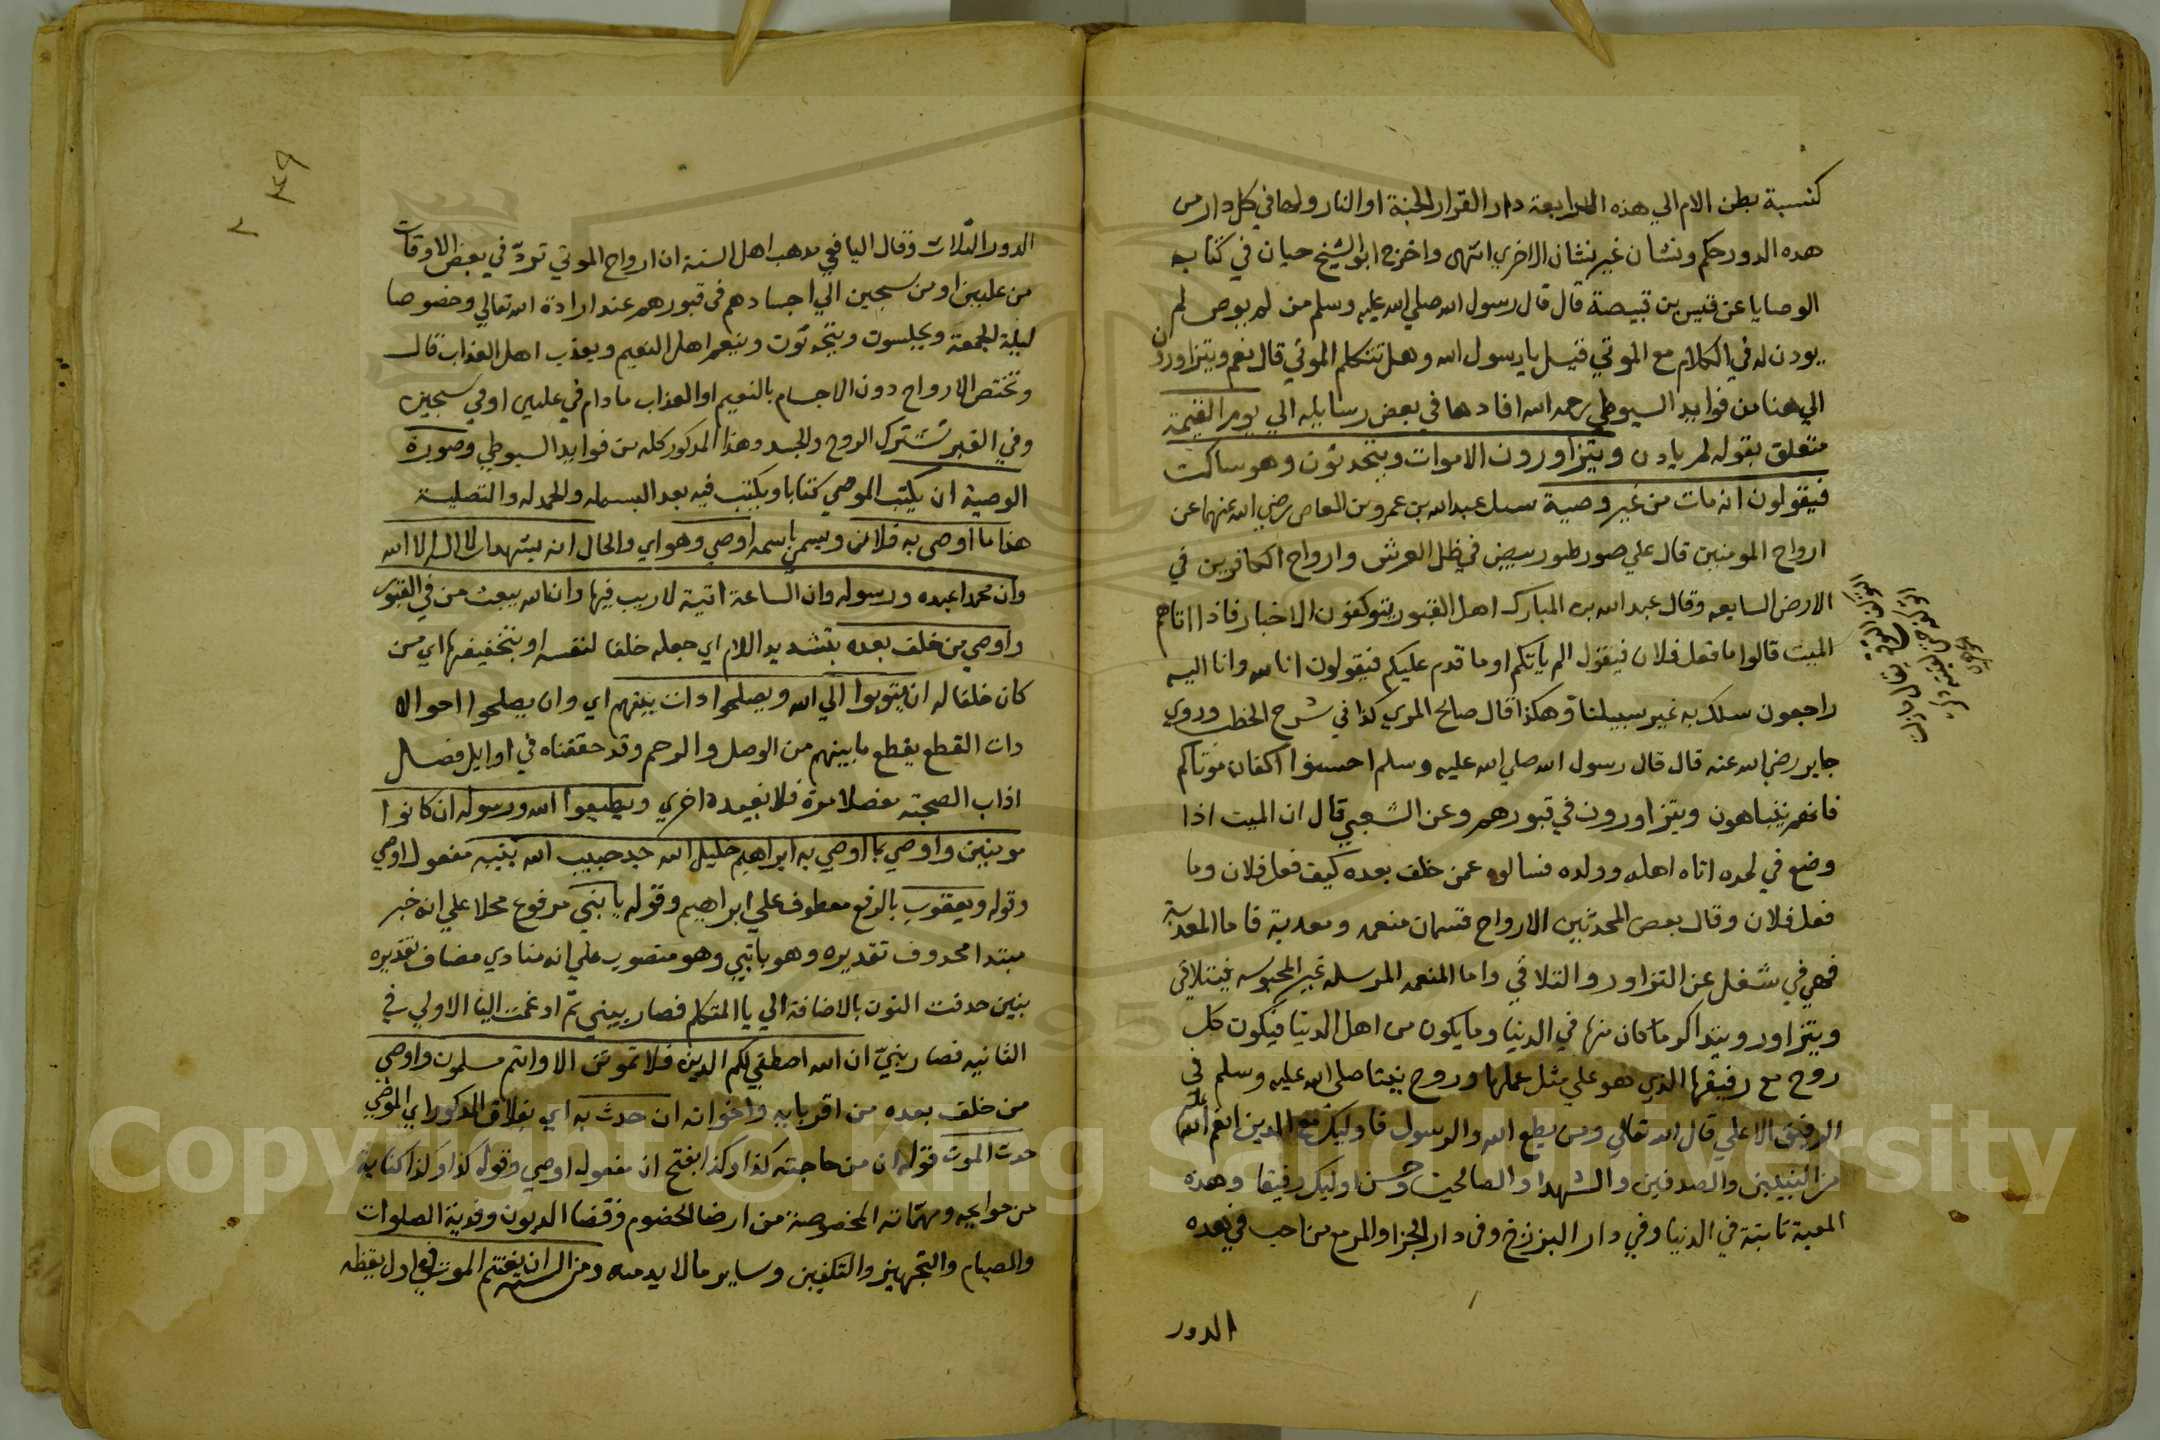 كنسبة بطن الام الي هذه الرابعة دار القرار الجنة او النار ولها في كل دار من
هده الدور حكم ونشان غير نشان الاخري انتهى واخرج ابو الشيخ حيان في كتاب
الوصايا عن قيس بن قبيصة قال قال رسول الله صلي الله عليه وسلم من لم يوص لم
يودن له في الكلام مع الموتي قيل يا رسول الله وهل تتكلم الموتي قال نعم ويتزاورون
الي هنا من فوايد السيوطي رحمه الله افادها في بعض رسايله الي يوم القيمة
متعلق بقوله لم يادن ويتزاورون الاموات ويتحدثون وهو ساكت
فيقولون انه مات من غير وصية سيل عبد الله بن عمرو بن العاص رضي الله عنهما عن
ارواح المومنين قال علي صور طيور بيض في ظل العرش وارواح الكافرين في
الارض السابعه وقال عبد الله بن المبارك اهل القبور يتوكفون الاخبار فاذا اتاهم
الميت قالوا ما فعل فلان فيقول الم ياتكم اوما قدم عليكم فيقولون انا لله وانا اليه
راجعون سلك به غير سبيلنا وهكذا قال صالح المري كذا في شرح الخطب وروي
جابر رضي الله عنه قال قال رسول الله صلي الله عليه وسلم احسنوا اكفان موتاكم
فانهم يتباهون ويتزاورون في قبورهم وعن الشعبي قال ان الميت اذا
وضع في لحده اتاه اهله وولده فسالوه عمن خلف بعده كيف فعل فلان وما
فعل فلان وقال بعض المحدثين الارواح قسمان منعمه ومعدبة فاما المعدبة
فهي في شغل عن التزاور والتلاقي واما المنعمه المرسله غير المحبوسه فيتلاقي
ويتزاور ويتداكر ما كان منها في الدنيا وما يكون من اهل الدنيا فيكون كل
روح مع رفيقها الذي هو علي مثل عملها وروح نبينا صلي الله عليه وسلم في
الرفيق الاعلي قال الله تعالي ومن يطع الله والرسول فاوليك مع الدين انعم الله عليهم
من النبيين والصدقين والشهدا والصالحين وحسن اوليك رفيقا وهذه
المعية ثابتة في الدنيا وفي دار البرزخ وفي دار الجزا والمرء مع من احب في هده
الدور
٢٤٩
٢
الدور الثلاث وقال اليافعي مدهب اهل السنة ان ارواح الموتي تردّ في بعض الاوقات
من عليين او من سجين الي اجسادهم في قبورهم عند ارادة الله تعالي وخصوصا
ليلة الجمعة ويجلسون ويتحدثون وينعم اهل النعيم ويعذب اهل العذاب قال
وتختص الارواح دون الاجسام بالنعيم او العذاب ما دام في عليين او في سجين
وفي القبر تشترك الروح والجسد وهذا المدكور كله من فوايد السيوطي وصورة
الوصية ان يكتب الموصي كتابا ويكتب فيه بعد البسمله والحمدله والتصلية
هذا ما اوصي به فلان ويسمي باسمه اوصي وهو اي والحال انه يشهد ان لا اله الا الله
وان محمدا عبده ورسوله وان الساعة اتية لا ريب فيها وان الله يبعث من في القبور
واوصي من خلف بعده بتشديد اللام اي جعله خلفا لنفسه او بتخفيفها اي من
كان خلفا له ان يتوبوا الي الله ويصلحوا ذات بينهم اي وان يصلحوا احوالا
ذات القطع يقطع ما بينهم من الوصل والرحم وقد حققناه في اوايل فصل
اداب الصحبة مفصلا مرة فلا نعيده اخري ويطيعوا الله ورسوله ان كانوا
مومنين واوصي بما اوصي به ابراهيم خليل الله جد حبيب الله بنيه مفعول اوصي
وقوله ويعقوب بالرفع معطوف علي ابراهيم وقوله يا بني مرفوع محلا علي انه خبر
مبتدا محدوف تقديره وهو يا بني وهو منصوب علي انه منادي مضاف تقديره
بنين حدفت النون بالاضافة الي يا المتكلم فصار بيني ثم ادغمت اليا الاولي في
الثانيه فصار بنيّ ان الله اصطفي لكم الدين فلا تموتن الا وانتم مسلمون واوصي
من خلف بعده من اقربايه واخوانه ان حدث به اي بفلان المدكور اي الموصي
حدث الموت قوله ان من حاجته كذا وكذا بفتح ان مفعول اوصي وقوله كذا وكذا كناية
من حوايجه ومهماته المخصوصة من ارضا الخصوم وقضا الديون وفدية الصلوات
والصيام والتجهيز والتكفين وساير ما لا بد منه ومن السنة ان يغتنم الموت في اول يقظه
Copyright © King Saud University